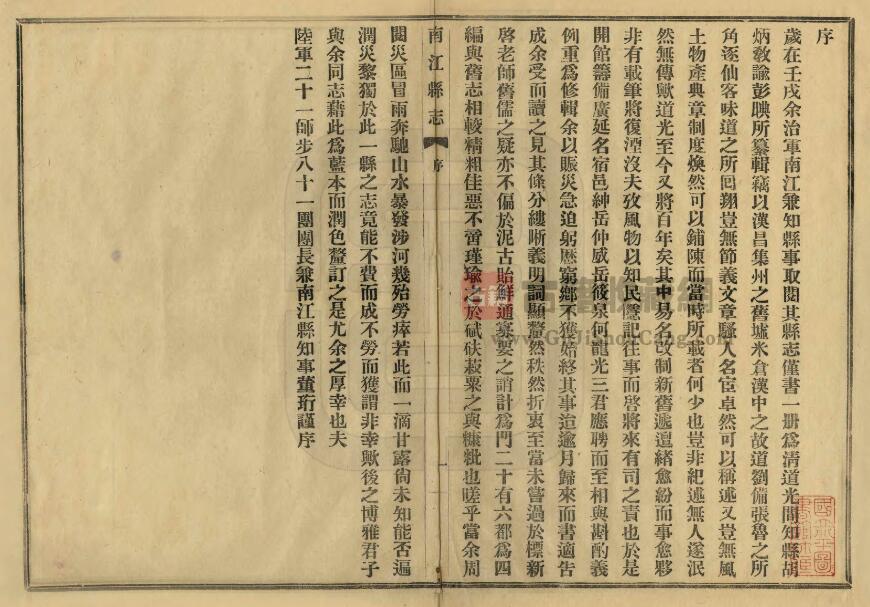 序
歲在壬戌余治軍南江兼知縣事取閱其縣志僅書一册爲清道光間知縣胡
炳敎諭彭㬇所纂輯竊以漢昌集州之舊墟米倉漢中之故道劉備張魯之所
角逐仙客味道之所回翔豈無節義文章騷人名宦卓然可以稱述又豈無風
土物產典章制度煥然可以鋪陳而當時所載者何少也豈非紀述無人遂泯
然無傳歟道光至今又將百年矣其中易名改制新舊遞遭緒愈紛而事愈夥
非有載筆將復湮沒夫攷風物以知民隱記往事而啓將來有司之責也於是
開館籌備廣延名宿邑紳岳仲威岳筱泉何龍光三君應聘而至相與斟酌義
例重爲修輯余以賑災急迫躬歷窮鄉不獲始終其事迨逾月歸來而書適告
成余受而讀之見其條分縷晰義明詞顯釐然秩然折衷至當未嘗過於標新
啓老師舊儒之疑亦不偏於泥古貽鮮通寡要之誚計爲門二十有六都爲四
編與舊志相較精粗佳惡不啻瑾瑜之於碔砆菽粟之與糠粃也嗟乎當余周
南江縣志
序
閱災區冒雨奔馳山水暴發涉河幾殆勞瘁若此而一滴甘露尙未知能否遍
潤災黎獨於此一縣之志竟能不費而成不勞而獲謂非幸歟後之博雅君子
與余同志藉此爲藍本而潤色釐訂之是尤余之厚幸也夫
陸軍二十一師步八十一團團長兼南江縣知事董珩謹序